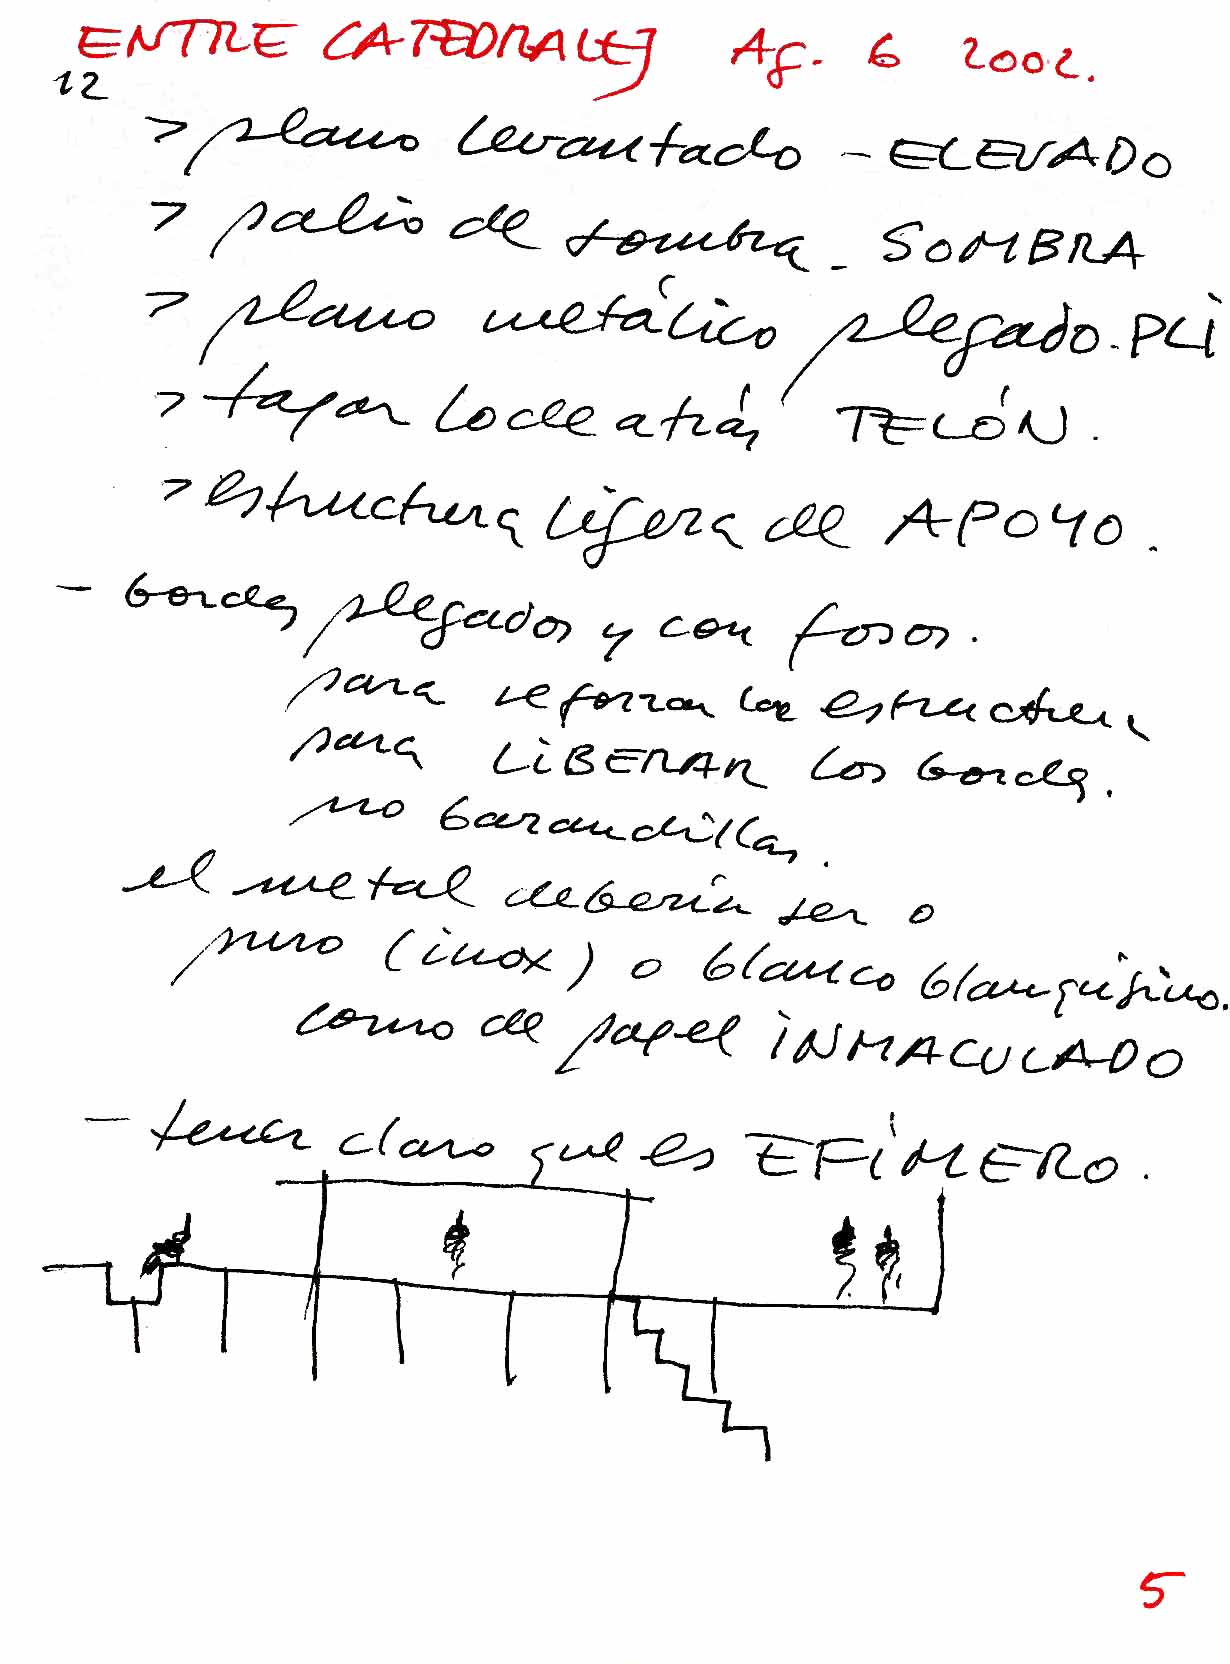 ENTRE CATEDRALES Ag. 6 2002.
12
> plano levantado - ELEVADO
> palio de sombra - SOMBRA
> plano metálico plegado. PLI
> tapar lo de atrás TELÓN.
> estructura ligera de APOYO.
- bordes plegados y con fosos.
para reforzar la estructura
para LiBERAR los bordes.
no barandillas.
el metal debería ser o
puro (inox) o blanco blanquísimo.
como de papel iNMACULADO
- tener claro que es EFíMERO.
5